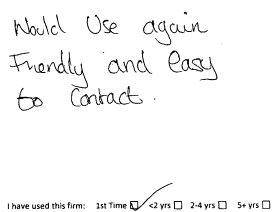 Would Use again
Friendly and easy
to Contact.
I have used this firm: 1st Time ☑ <2 yrs ☐ 2-4 yrs ☐ 5+ yrs ☐